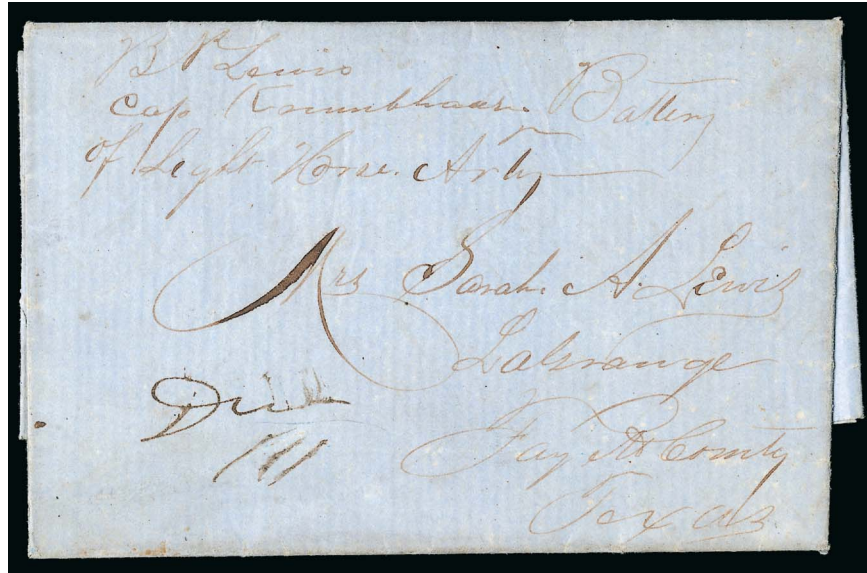 B P Lewis
Cap Krumbhaar Battery
of Light Horse Arty
Mrs Sarah A. Lewis
LaGrange
Due
Fay Co County
Texas